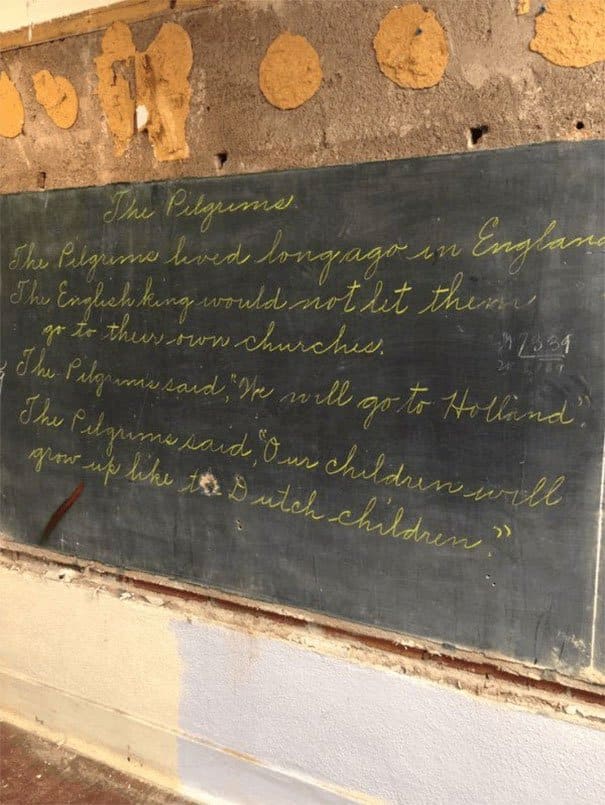 The Pilgrims.
The Pilgrims lived long ago in England
The English king would not let them
go to their own churches.
The Pilgrims said, "We will go to Holland".
The Pilgrims said, "Our children will
grow up like Dutch children."